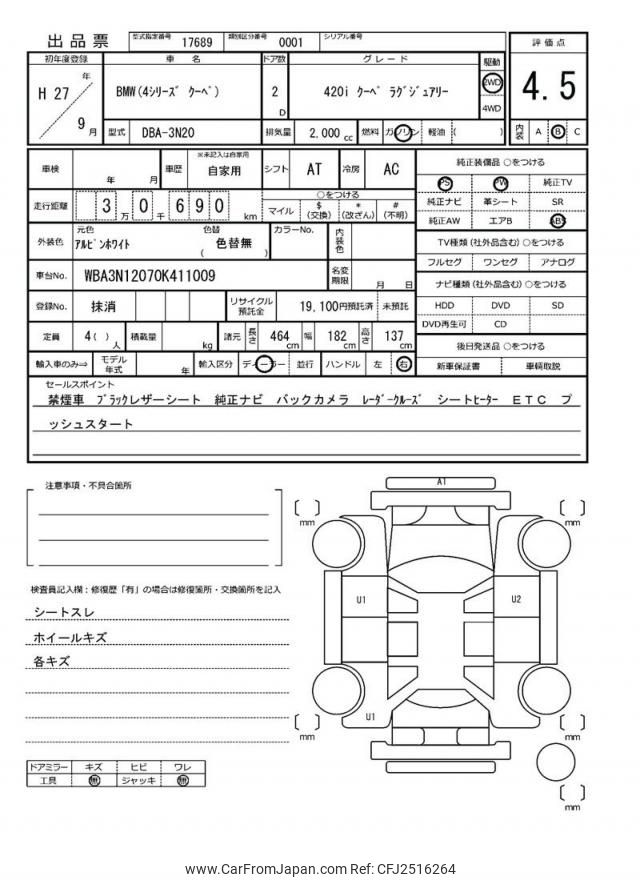 出品票 型式指定番号 17689 類別区分番号 0001 シリアル番号
初年度登録 車名 ドア数 グレード 駆動 評価点
H 27 年 9 月
BMW(4シリーズ クーペ) 2 D 420i クーペ ラグジュアリー 2WD 4WD 4.5
型式 DBA-3N20 排気量 2,000 cc 燃料 ガソリン 軽油 ( ) 内装 A B C
車検 年 月 車歴 ※未記入は自家用 自家用 シフト AT 冷房 AC
走行距離 3 万 0 千 6 9 0 km
○をつける
マイル $ (交換) * (改ざん) # (不明)
外装色 元色 アルピンホワイト 色替 ( 色替無 ) カラーNo. 内装色
車台No. WBA3N12070K411009 名変期限 月 日
登録No. 抹消 リサイクル預託金 19,100円預託済 未預託
定員 4( ) 人 積載量 kg 諸元 長さ 464 cm 幅 182 cm 高さ 137 cm
輸入車のみ⇒ モデル年式 年 輸入区分 ディーラー 並行 ハンドル 左 右
純正装備品 ○をつける
PS PW 純正TV
純正ナビ 革シート SR
純正AW エアB ABS
TV種類(社外品含む)○をつける
フルセグ ワンセグ アナログ
ナビ種類(社外品含む)○をつける
HDD DVD SD
DVD再生可 CD
後日発送品 ○をつける
新車保証書 車輌取説
セールスポイント
禁煙車 ブラックレザーシート 純正ナビ バックカメラ レーダークルーズ シートヒーター ETC プ
ッシュスタート
注意事項・不具合箇所
検査員記入欄:修復歴「有」の場合は修復箇所・交換箇所を記入
シートスレ
ホイールキズ
各キズ
ドアミラー キズ ヒビ ワレ
工具 無 ジャッキ 無
A1
mm
mm
U1
U2
U1
mm
mm
mm
www.CarFromJapan.com Ref: CFJ2516264